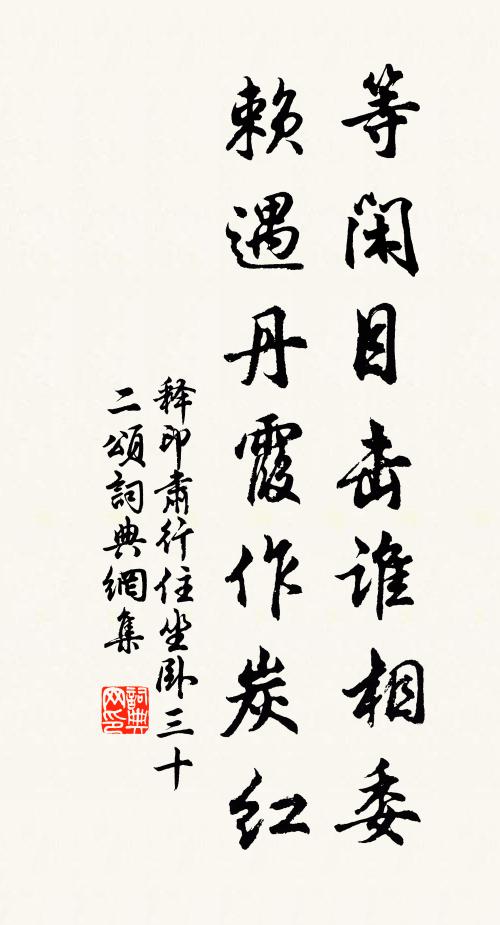 等闲目击谁相委
赖遇丹霞作炭红
释印肃行住坐卧三十
二頌詞典網集
詞典网印